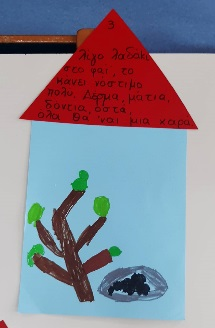 3
Λίγο λαδάκι
στο φαΐ, το
κάνει νόστιμο
πολύ. Δέρμα, μάτια,
δόντια, οστά,
όλα θα 'ναι μια χαρά